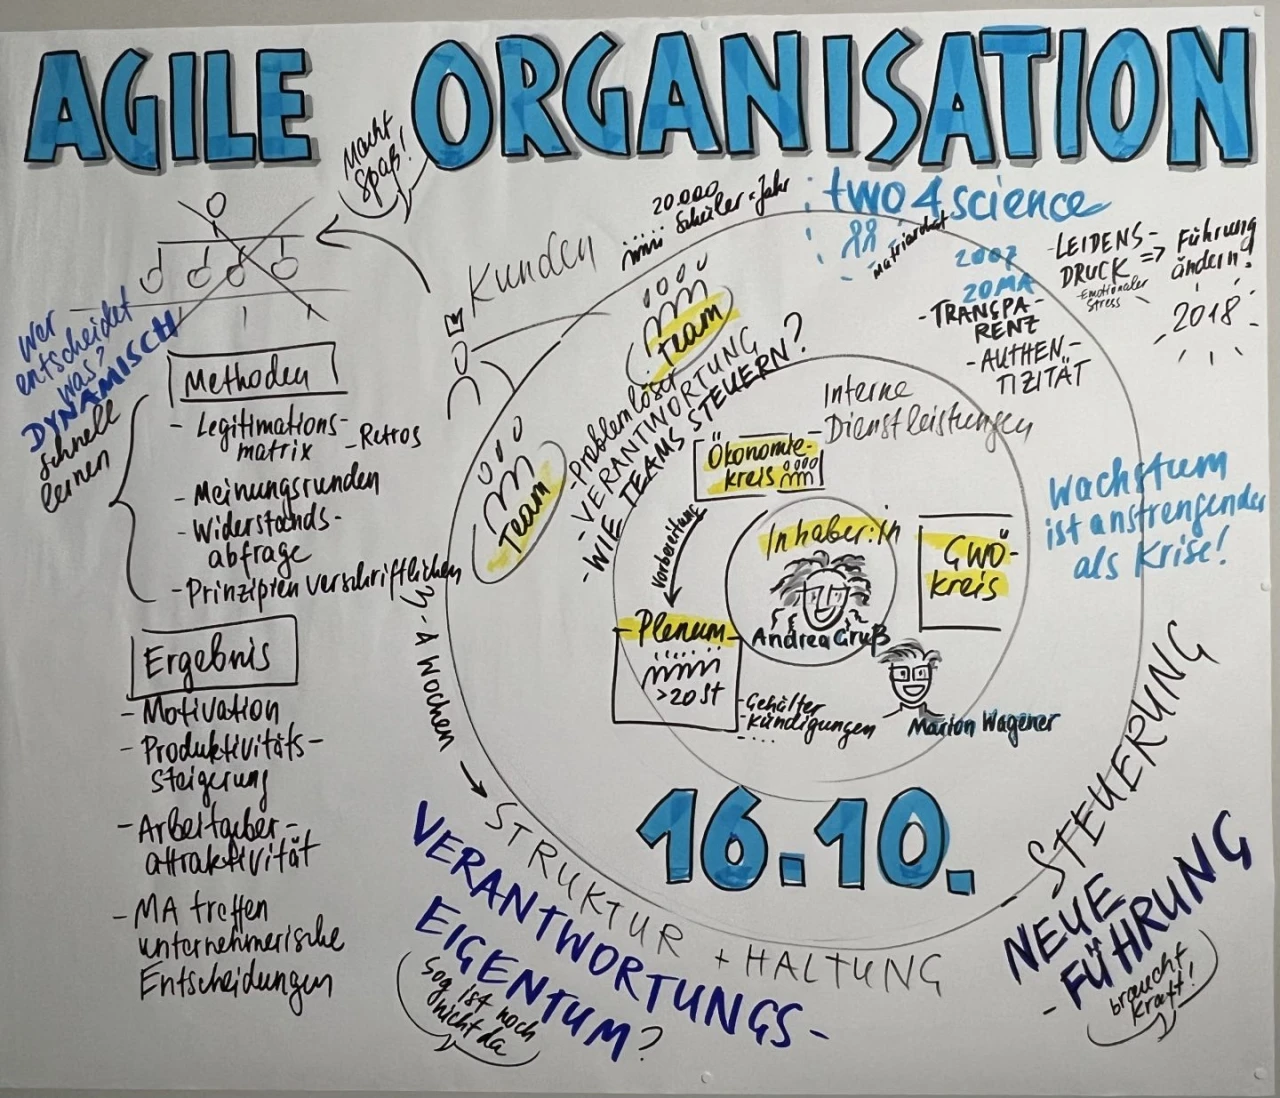 AGILE ORGANISATION
Macht
Spaß!
Wer
entscheidet
was?
DYNAMISCH
schnell
lernen
Methoden
- Legitimations-
matrix
- Retros
- Meinungsrunden
- Widerstands-
abfrage
- Prinzipien verschriftlichen
Ergebnis
- Motivation
- Produktivitäts-
steigerung
- Arbeitgeber-
attraktivität
- MA treffen
unternehmerische
Entscheidungen
Kunden
20.000
Schüler
Jahr
two4science
Matriarchat
2007
20MA
- TRANSPA-
RENZ
- AUTHEN-
TIZITÄT
- LEIDENS-
DRUCK
- Emotionaler
Stress
=> Führung
ändern!
2018
Team
Team
- Problemlöser
- VERANTWORTUNG
- WIE TEAMS STEUERN?
Interne
Dienstleistungen
Ökonomie-
kreis
Vorbereitung
Inhaber:in
Andrea Gruß
GWÖ-
kreis
Marion Wagener
Plenum
>20 St
- Gehälter
- Kündigungen
- ....
Wachstum
ist anstrengender
als Krise!
16.10.
Wochen
STRUKTUR + HALTUNG
- STEUERUNG
VERANTWORTUNGS-
EIGENTUM?
GOG ist noch
nicht da
NEUE
- FÜHRUNG
braucht
Kraft!